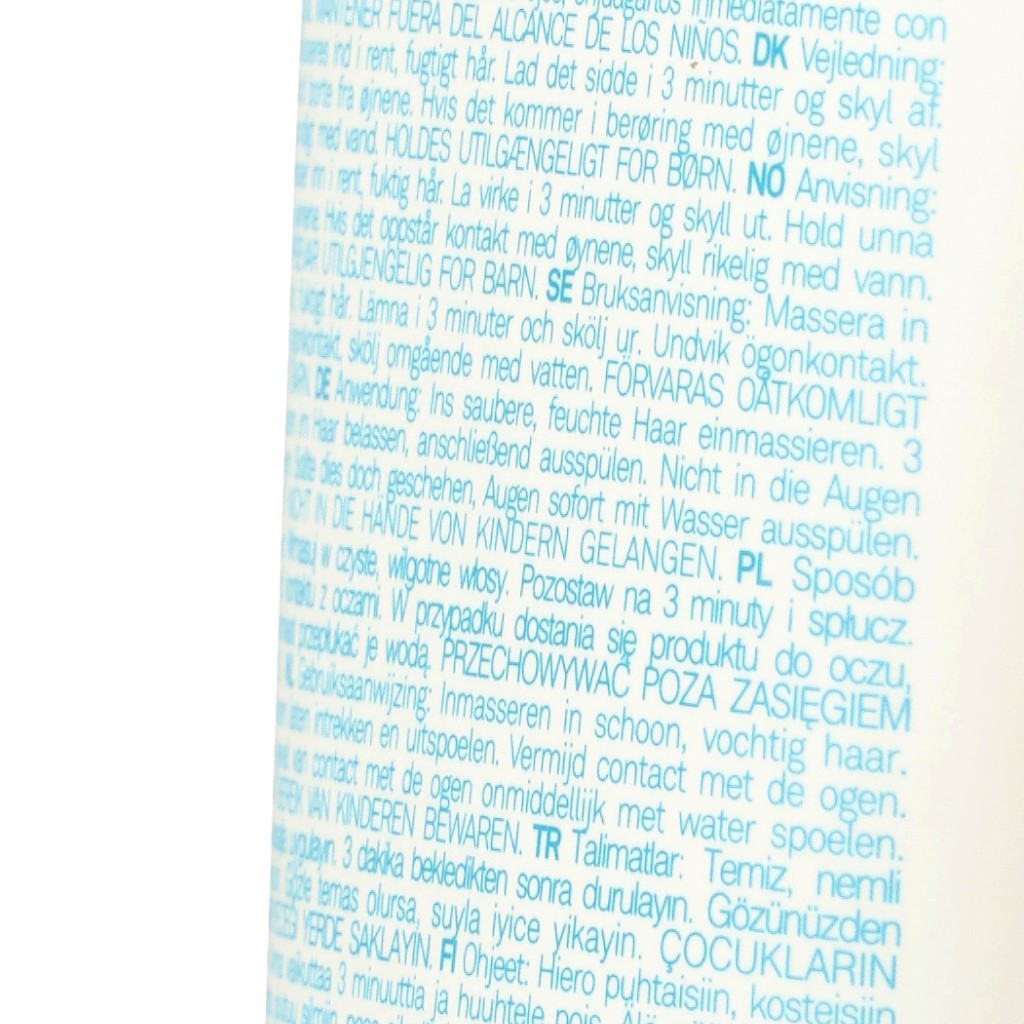 enjuagarlos inmediatamente con
MANTENER FUERA DEL ALCANCE DE LOS NIÑOS. DK Vejledning:
ind i rent, fugtigt hår. Lad det sidde i 3 minutter og skyl af.
fra øjnene. Hvis det kommer i berøring med øjnene, skyl
med vand. HOLDES UTILGÆNGELIGT FOR BØRN. NO Anvisning:
inn i rent, fuktig hår. La virke i 3 minutter og skyll ut. Hold unna
Hvis det oppstår kontakt med øynene, skyll rikelig med vann.
UTILGJENGELIG FOR BARN. SE Bruksanvisning: Massera in
hår. Lämna i 3 minuter och skölj ur. Undvik ögonkontakt.
skölj omgående med vatten. FÖRVARAS OÅTKOMLIGT
DE Anwendung: Ins saubere, feuchte Haar einmassieren. 3
im Haar belassen, anschließend ausspülen. Nicht in die Augen
Sollte dies doch geschehen, Augen sofort mit Wasser ausspülen.
NICHT IN DIE HÄNDE VON KINDERN GELANGEN. PL Sposób
w czyste, wilgotne włosy. Pozostaw na 3 minuty i spłucz.
z oczami. W przypadku dostania się produktu do oczu,
przepłukać je wodą. PRZECHOWYWAĆ POZA ZASIĘGIEM
NL Gebruiksaanwijzing: Inmasseren in schoon, vochtig haar.
laten intrekken en uitspoelen. Vermijd contact met de ogen.
van contact met de ogen onmiddellijk met water spoelen.
VAN KINDEREN BEWAREN. TR Talimatlar: Temiz, nemli
uygulayın. 3 dakika bekledikten sonra durulayın. Gözünüzden
Gözle temas olursa, suyla iyice yıkayın. ÇOCUKLARIN
YERDE SAKLAYIN. FI Ohjeet: Hiero puhtaisiin, kosteisiin
vaikuttaa 3 minuuttia ja huuhtele pois.